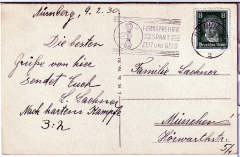 Nürnberg, 9.2.30.
Die besten
Grüße von hier
sendet Euch
L. Lachner
Nach hartem Kampfe
3:2
FERNSPRECHEN
SPART
ZEIT UND GELD
8
Deutsches Reich
Familie Lachner
München
Hörwarthstr.